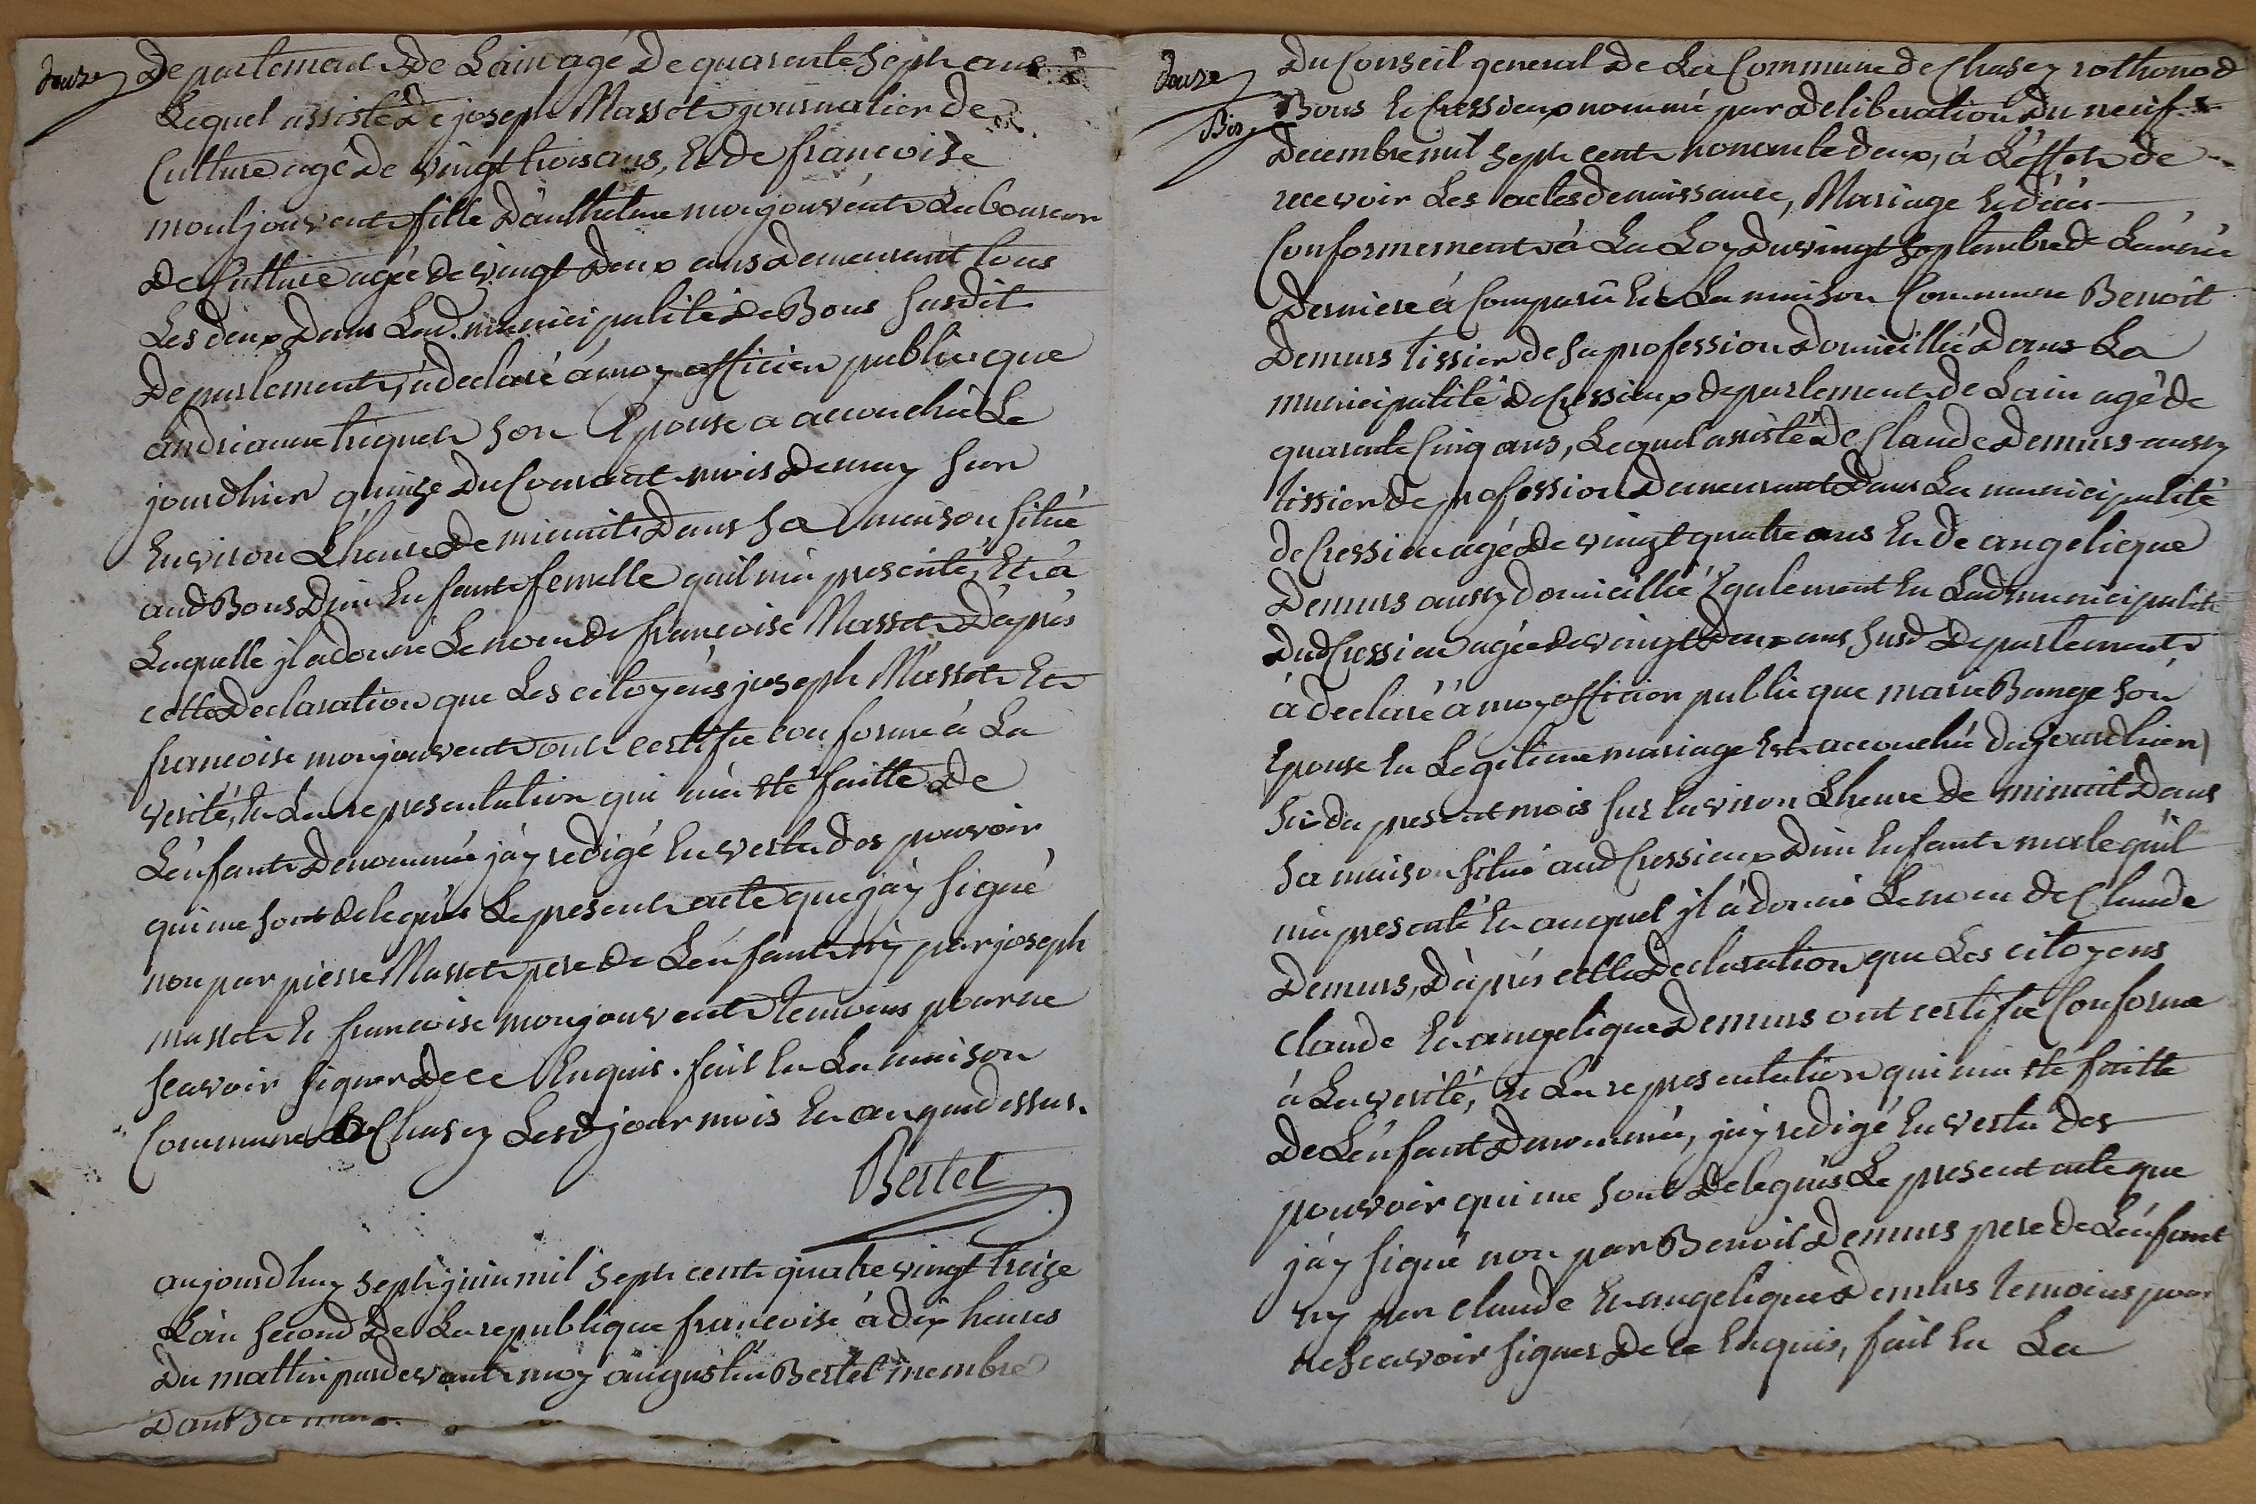 douze
Departement De Lain agé De quarente Sept ans
Lequel assisté De joseph Massot journalier de
Culture agé de vingt trois ans, Et de francoise
monljouvent fille D'anthelme monjouvent Laboureur
De Culture agée de vingt Deux ans Demeurant tous
Les deux Dans Lad. municipalité De Bons Susdit
Departement, à declaré à moy officier public que
andrianne triquet Son Epouse a accouchée Le
jourdhier quinze Du Courant mois De may Sur
Environ L'heure De minuit Dans Sa maison Située
aud Bons D'un Enfant femelle quil m'a presenté, Et à
Laquelle jl a donné Le nom de françoise Massot D'après
cette Declaration que Les citoyens joseph Massot Et
francoise monjouvent ont certifié conforme à La
verité, Et La representation qui m'a été faitte De
L'enfant Denommée j'ay redigé En vertu des pouvoir
qui me sont delegués Le present acte que j'ay Signé
non par pierre Massot pere de L'enfant ny par joseph
massot Et francoise monjouvent temoins pour ne
Scavoir Signer De ce Enquis. fait En La maison
Commune De Chasey Lesd jour mois Et an que dessus.
Bertet
aujourdhuy Sept juin mil Sept cent quatre vingt treize
L'an Second De La republique francoise à dix heures
Du mattin pardevant moy augustin Bertet membre
Dans Sa
douze
Bis
Du Conseil general De La Commune de Chasey rothonod
Bons Et Cressieux nommé par Deliberation Du neuf
Decembre mil Sept cent nonante deux, à L'effet de
recevoir Les actes de naissance, Mariage Et décès
Conformement à La Loy Du vingt Septembre de L'année
Derniere à Comparu En La maison Commune Benoit
Demurs tissier de Sa profession Domicillié Dans La
municipalité De Cressieux departement de Lain agé de
quarante Cinq ans, Lequel assisté De Claude Demurs aussy
tissier de profession Demeurant Dans La municipalité
de Cressieu agé De vingt quatre ans Et de angelicque
Demurs aussy domicillié Egalement En Lad municipalité
Dud Cressieu agée De vingt Deux ans Susd Departement
à declaré à moy officier public que marie Bange Son
Epouse En Legitime mariage Est accouchée du jourdhier
Six du present mois Sur Environ L'heure de minuit Dans
Sa maison Située aud Cressieux D'un Enfant male qu'il
m'a presenté Et auquel jl à donné Le nom de Claude
Demurs, D'après cette Declaration que Les citoyens
Claude Et angelique Demurs ont certifié Conforme
à La verité, Et La representation qui m'a été faitte
De L'enfant Denommée, j'ay redigé En vertu des
pouvoir qui me sont Delegués Le present acte que
j'ay Signé non par Benoit Demurs pere de L'enfant
ny par Claude Et angelique Demurs temoins pour
ne Scavoir Signer De ce Enquis, fait En La